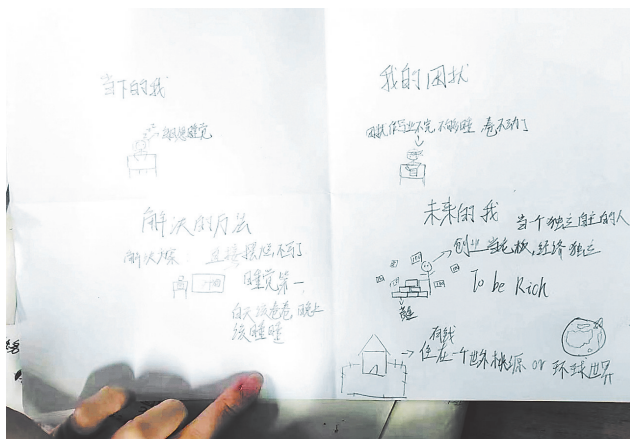 当下的我
只想睡觉
我的困扰
困扰:作业写不完 不够睡 卷不动了
解决的方法
解决方案: 直接摆烂不卷了
睡觉第一
白天该卷卷 晚上
该睡睡
未来的我 当一个独立自主的人
创业当老板,经济独立
To be Rich
有钱
住在一个世外桃源 or 环球世界